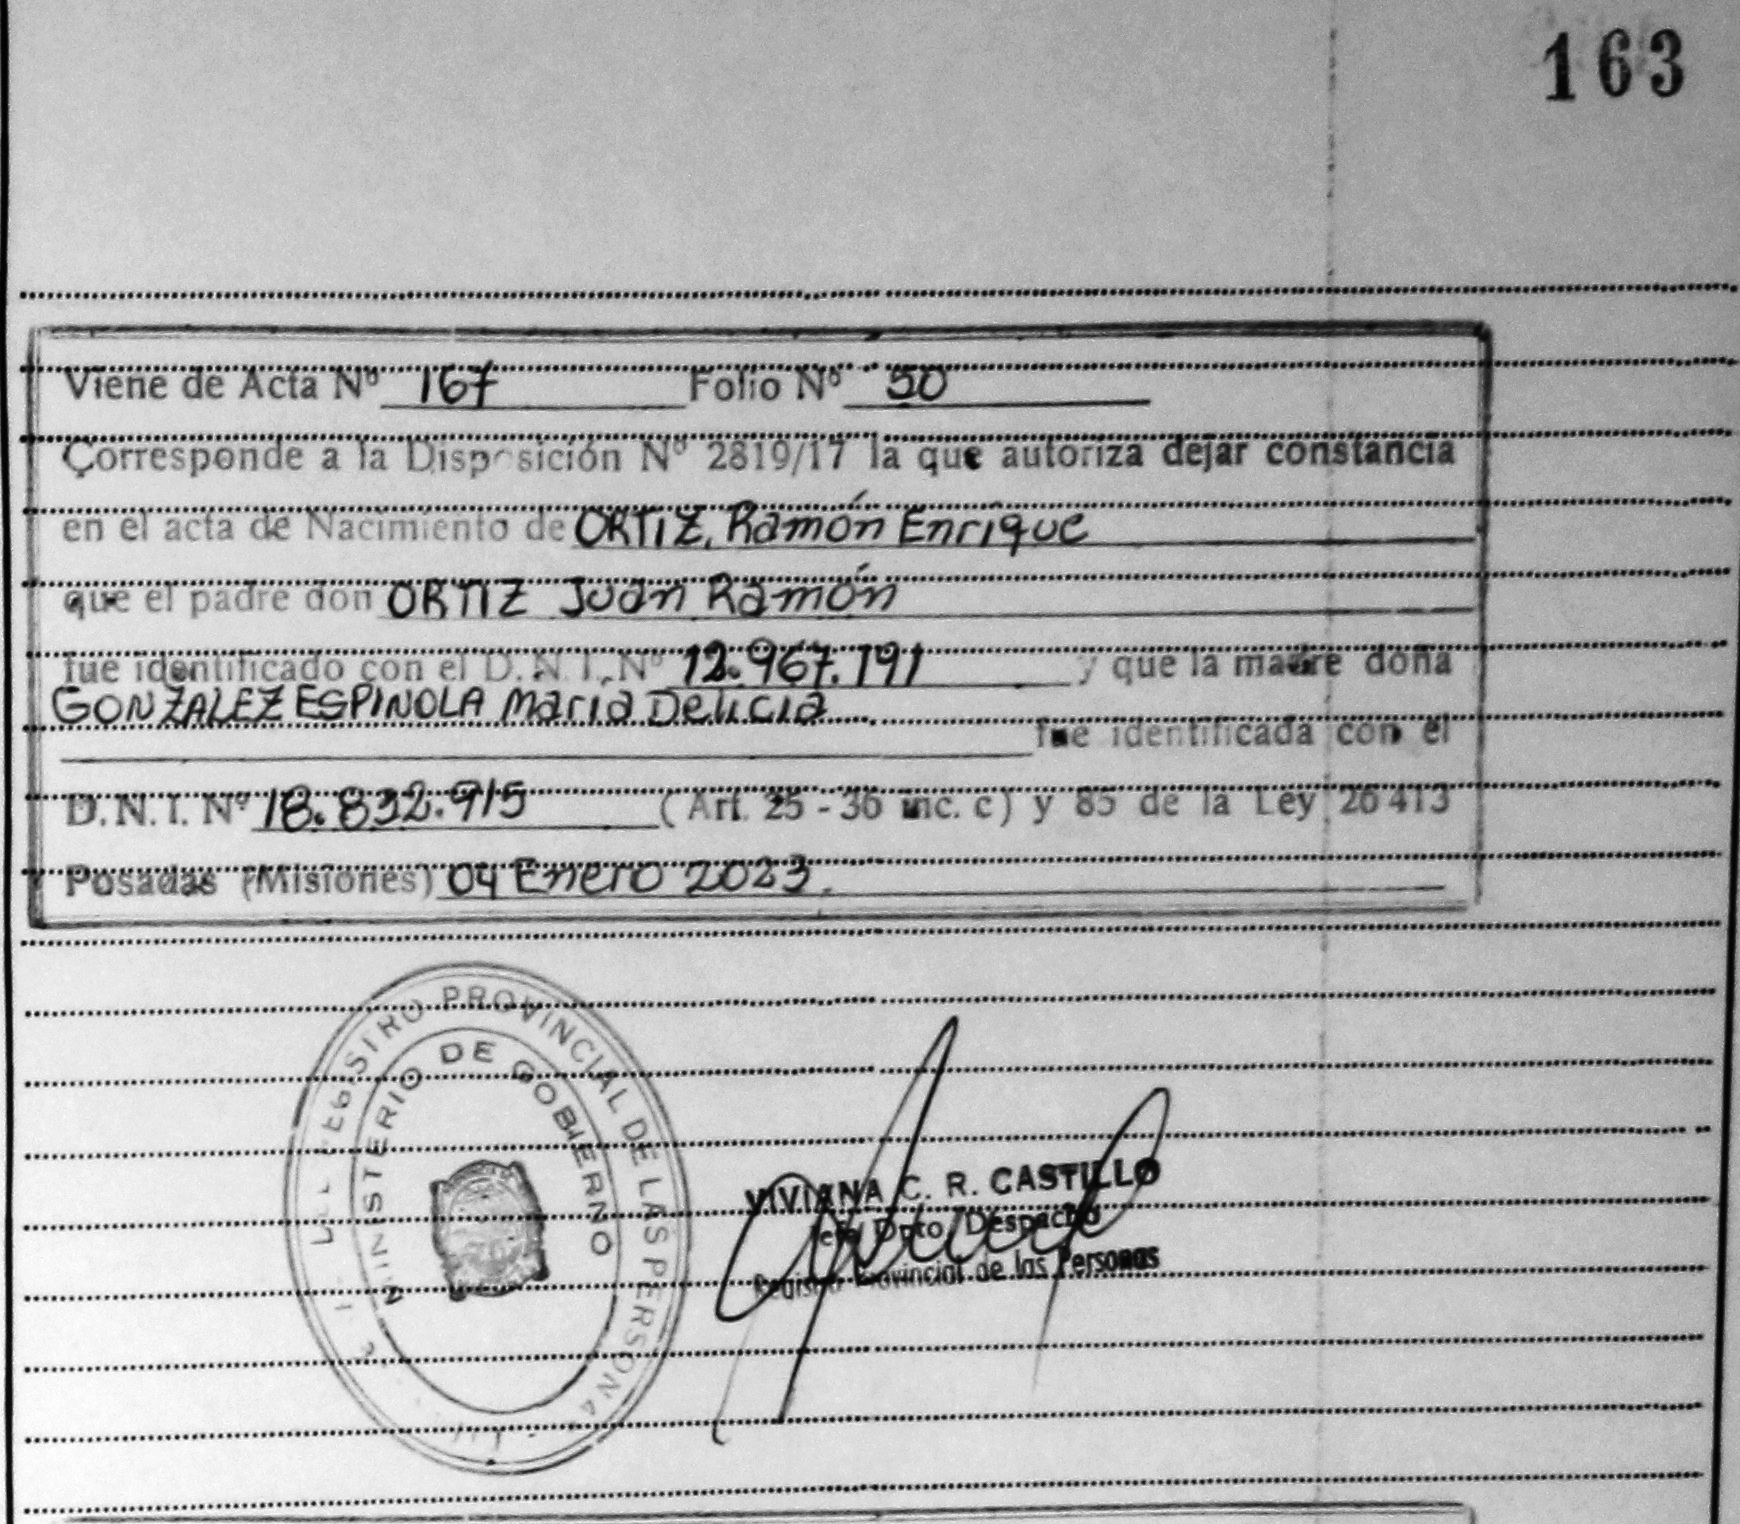 163
Viene de Acta Nº 167 Folio Nº 50
Corresponde a la Disposición Nº 2819/17 la que autoriza dejar constancia
en el acta de Nacimiento de ORTIZ, Ramón Enrique
que el padre don ORTIZ Juan Ramón
fue identificado con el D.N.I. Nº 12.967.191 y que la madre doña
GONZALEZ ESPINOLA María Delicia
fue identificada con el
D.N.I. Nº 18.832.915 (Art. 25 - 36 inc. c) y 85 de la Ley 26413
Posadas (Misiones) 04 Enero 2023.
REGISTRO PROVINCIAL DE LAS PERSONAS
MINISTERIO DE GOBIERNO
VIVIANA C. R. CASTILLO
Jefe Dpto Despacho
Registro Provincial de las Personas